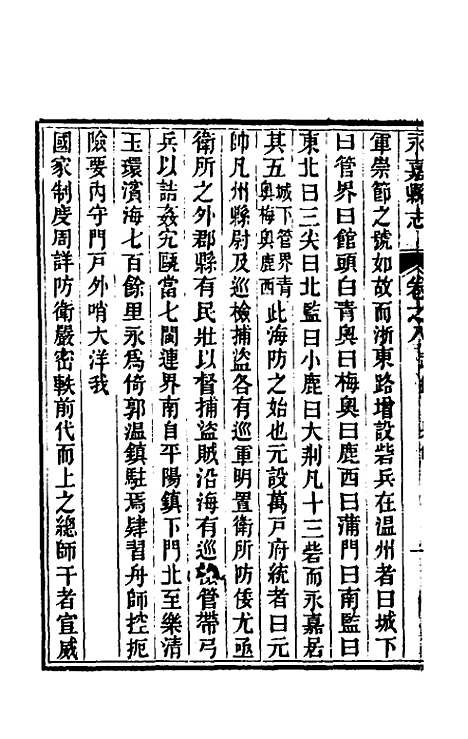 永嘉縣志 卷之八
軍崇節之號如故而浙東路增設砦兵在温州者曰城下
曰管界曰館頭曰青奧曰梅奧曰鹿西曰蒲門曰南監曰
東北曰三尖曰北監曰小鹿曰大荆凡十三砦而永嘉居
其五城下管界青奧梅奧鹿西此海防之始也元設萬戸府統者曰元
帥凡州縣尉及巡檢捕盜各有巡軍明置衛所防倭尤亟
衛所之外郡縣有民壯以督捕盜賊沿海有巡 管帶弓
兵以詰姦宄甌當七閩連界南自平陽鎮下門北至樂清
玉環濱海七百餘里永爲倚郭温鎮駐焉肄習舟師控扼
險要內守門戸外哨大洋我
國家制度周詳防衛嚴密軼前代而上之總師干者宣威